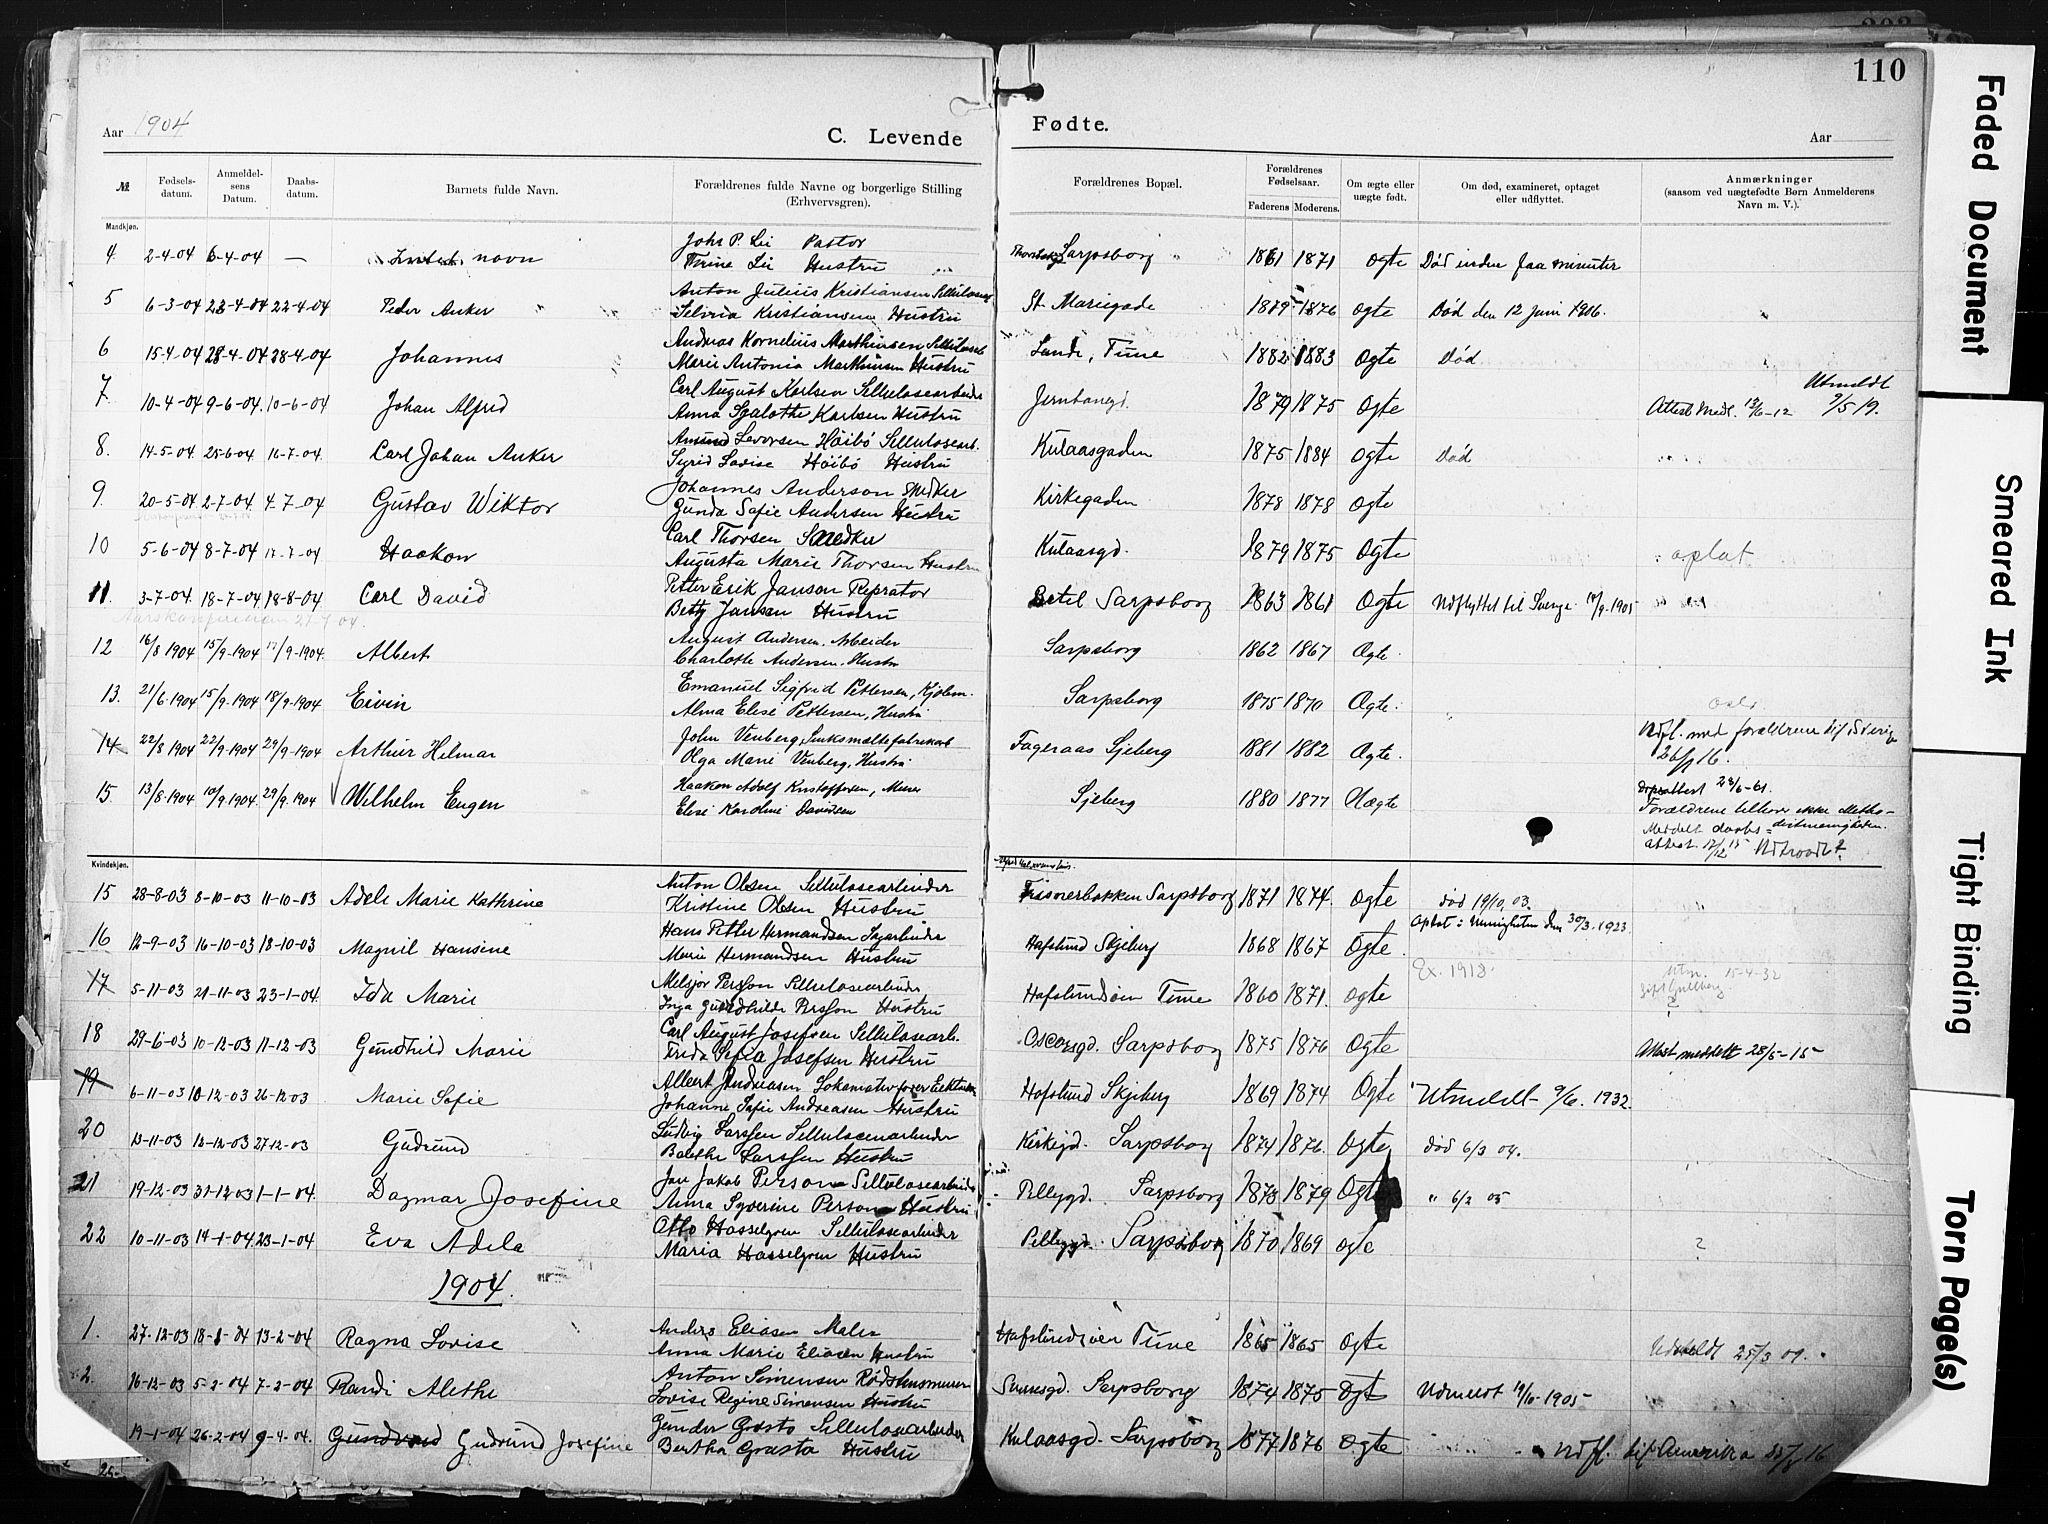 110
Aar 1904
C. Levende Fødte.
Aar
№ Fødsels-datum. Anmeldel-sens Datum. Daabs-datum. Barnets fulde Navn. Forældrenes fulde Navne og borgerlige Stilling (Erhvervsgren). Forældrenes Bopæl. Forældrenes Fødselsaar. Faderens Moderens. Om ægte eller uægte født. Om død, examineret, optaget eller udflyttet. Anmærkninger (saasom ved uægtefødte Børn Anmelderens Navn m. V.).
Mandkjøn.
4. 2-4-04 6-4-04 — navn Johs P. Lii Pastor Sarpsborg 1861 1871 Ogte Død inden faa minuter
Trine Lii Hustru
5 6-3-04 22-4-04 Peder Anker Anton Julius Kristiansen St. Mariegade 1879 1876 Ogte Død den 12 Juni 1906.
Kristiansen Hustru
6 15-4-04 28-4-04 28-4-04 Johannes Andreas Kornelius Marthinsen Lande, Tune 1882 1883 Ogte Død
Marie Antonia Marthinsen Hustru
7 10-4-04 9-6-04. 10-6-04 Johan Alfred Carl August Karlsen Sellulosearbeider Jernbanegd. 1879 1875 Ogte Attest Medl. 12/6-12 Utmeldt 9/5 19.
Anna Karlsen Hustru
8. 14-5-04 25-6-04 16-7-04. Carl Johan Anker Amund Levorsen Höibö Sellulosearb. Kulaasgaden 1875 1884 Ogte Død
Sigrid Lovise Höibö Hustru
9. 20-5-04 2-7-04 4-7-04 Gustav Wiktor Johannes Anderson Snedker Kirkegaden 1878 1878 Ogte
Gunda Sofie Andersen Hustru
10 5-6-04 8-7-04 17-7-04 Haakon Carl Thorsen Snedker Kulaasgd. 1879 1875 Ogte optat
Augusta Marie Thorsen Hustru
11. 3-7-04. 18-7-04 18-8-04 Carl David Petter Erik Janson Reprator Sarpsborg 1863 1861 Ogte Udflyttet til Sverge 10/9.1905
Betty Jansen Hustru
12 16/8 1904 15/9-1904 17/9-1904. Albert August Andersen. Arbeider Sarpsborg 1862 1867 Ægte.
Charlotte Andersen. Hustru
13. 21/6.1904 15/9.1904 18/9-1904 Eivin Emanuel Sigfrid Pettersen, Sarpsborg 1875 1870 Ægte.
Alma Elise Pettersen, Hustru
14 22/8 1904 22/9-1904 29/9-1904 Arthur Helmar John Venberg, Fageraas Sjeberg 1881 1882 Ægte. Udfl. med forældrene til Sverige
Olga Marie Venberg, Hustru
15. 13/8.1904 10/9.1904 29/9.1904 Wilhelm Eugen Haakon Adolf Kristoffersen, Murer Sjeberg 1880 1877 Uægte Daapsattest 23/6-61.
Elise Karoline Davidsen Forældrene tilhører ikke Metho-distmenigheten.
Meddelt daabs= attest 17/12 15 Udtraadt?
Kvindekjøn.
15 28-8-03 8-10-03 11-10-03 Adele Marie Kathrine Anton Olsen Sellulosearbeider Sarpsborg 1871 1874. Ogte død 19/10.03.
Kristine Olsen Hustru
16 12-9-03 16-10-03 18-10-03 Magnil Hansine Hans Petter Hermandsen Sagarbeider Hafslund Skjeberg 1868 1867 Ogte. Optat i Menigheten den 30/3.1923.
Marie Hermandsen Hustru Ex. 1918.
17 5-11-03 21-11-03 23-1-04. Ida Marie Melsjor Persson Sellulosearbeider Hafslundsöen Tune 1860 1871. Ogte Utm. 15-4-32
Inga Gundhilde Persson Hustru
18 29-6-03 10-12-03 11-12-03 Gundhild Marie Carl August Josefsen Sellulosearb. Oscarsgd. Sarpsborg 1875 1876 Ogte Attest meddelt 28/5-15
Frida Sofia Josefsen Hustru
19 6-11-03 10-12-03 26-12-03 Marie Sofie Albert Andreasen Hafslund Skjeberg 1869 1874 Ogte Utmeldt 9/6. 1932.
Johanne Sofie Andreasen Hustru
20 13-11-03 12-12-03 27-12-03 Gudrund Ludvig Larssen Sellulosearbeider Kirkegd. Sarpsborg 1874 1876. Ogte død 6/3 04.
Larssen Hustru
21 19-12-03 31-12-03 1-1-04. Dagmar Josefine Jan Jakob Person Sellulosearbeider Pellygd. Sarpsborg 1873 1879 Ogte " 6/2 05
Anna Severine Person Hustru
22 10-11-03 14-1-04 23-1-04 Eva Adela Otto Hasselgren Sellulosearbeider Pellygd. Sarpsborg 1870 1869 ogte ?
Maria Hasselgren Hustru
1904.
1. 27-12-03 18-1-04 13-2-04 Ragna Lovise Anders Eliasen Maler Hafslundsöen Tune 1865 1865 Ogte Udmeldt 25/3 09.
Anna Marie Eliasen Hustru
2. 16-12-03 5-2-04 7-2-04 Randi Alethe Anton Simensen Sarpsborg 1874 1875 Ogt Udmeldt 19/10-1905
Lovise Regine Simensen Hustru
19-1-04 26-2-04 9-4-04. Gudrund Josefine Gunder Grasto Sellulosearbeider Kulaasgd. Sarpsborg 1877 1876 Ogte Udfl. til Amerika 16
Bertha Grasto Hustru
Faded Document
Smeared Ink
Tight Binding
Torn Page(s)